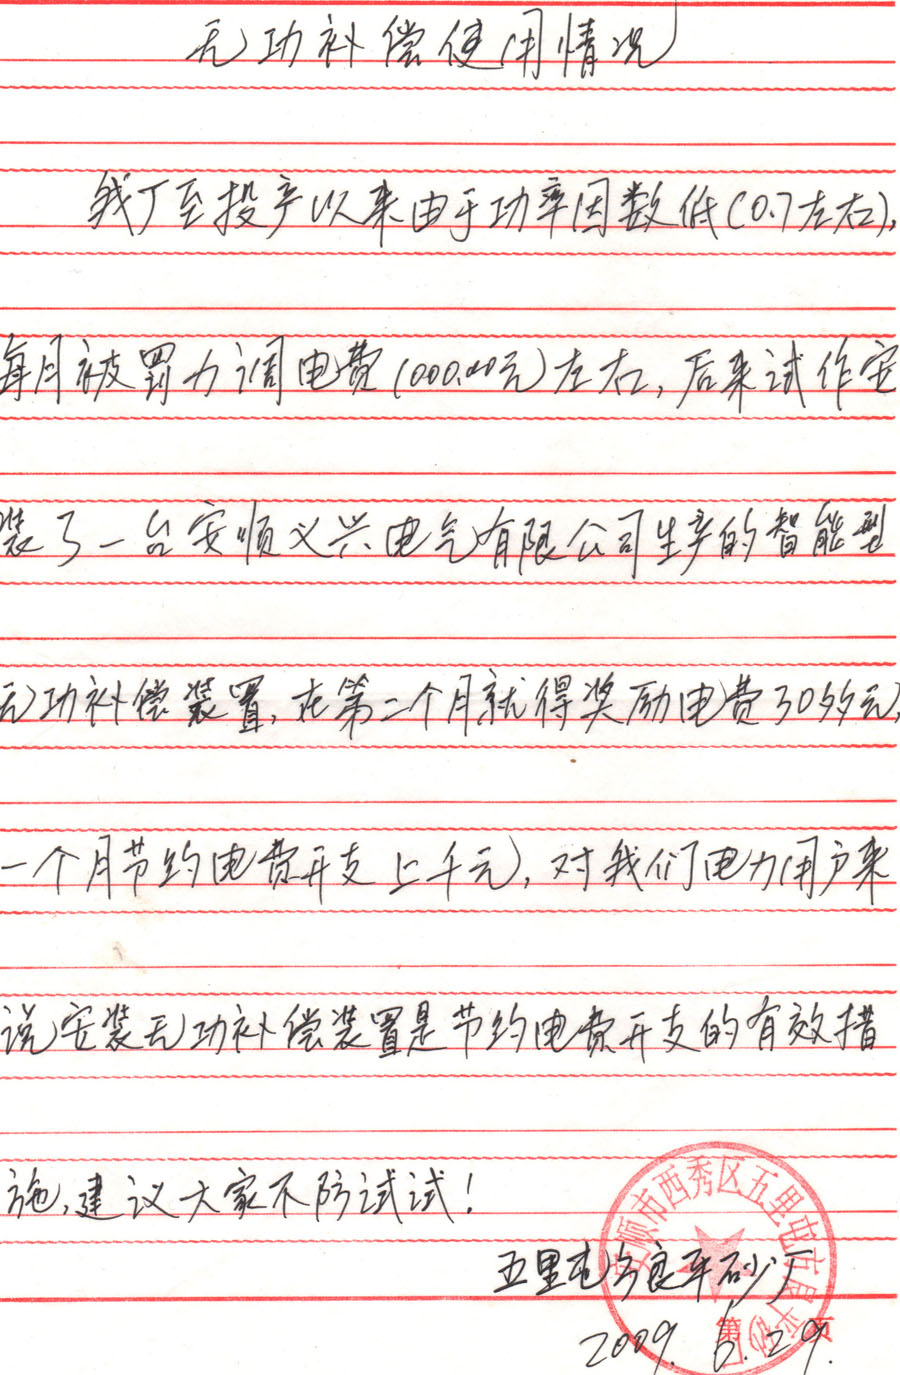 无功补偿使用情况
我厂至投产以来由于功率因数低(0.7左右),
每月被罚力调电费1000.00元左右,后来试作安
装了一台安顺义兴电气有限公司生产的智能型
无功补偿装置,在第二个月就得奖励电费30多元,
一个月节约电费开支上千元,对我们电力用户来
说安装无功补偿装置是节约电费开支的有效措
施,建议大家不防试试!
安顺市西秀区五里屯
五里屯良平砂厂
第 页
2009.6.29.